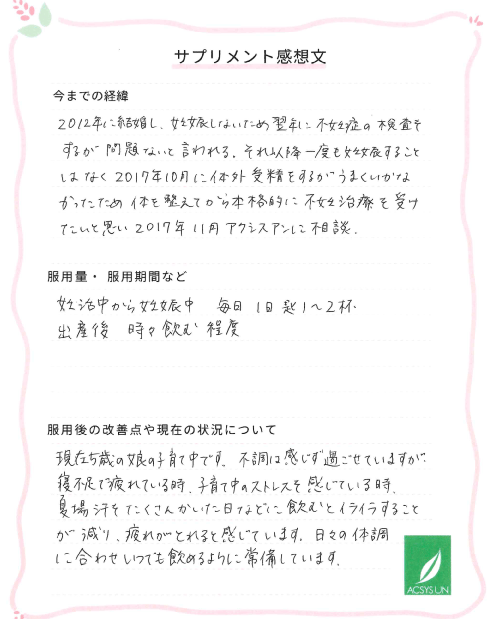 サプリメント感想文
今までの経緯
2012年に結婚し、妊娠しないため翌年に不妊症の検査を
するが問題ないと言われる。それ以降一度も妊娠すること
はなく2017年10月に体外受精をするがうまくいかな
かったため体を整えてから本格的に不妊治療を受け
たいと思い2017年11月アクシスアンに相談.
服用量・ 服用期間など
妊活中から妊娠中 毎日1日匙1〜2杯
出産後 時々飲む程度
服用後の改善点や現在の状況について
現在5歳の娘の子育て中です。不調は感じず過ごせていますが
寝不足で疲れている時、子育て中のストレスを感じている時、
夏場汗をたくさんかいた日などに飲むとイライラすること
が減り、疲れがとれると感じています。日々の体調
に合わせいつでも飲めるように常備しています。
ACSYS UN